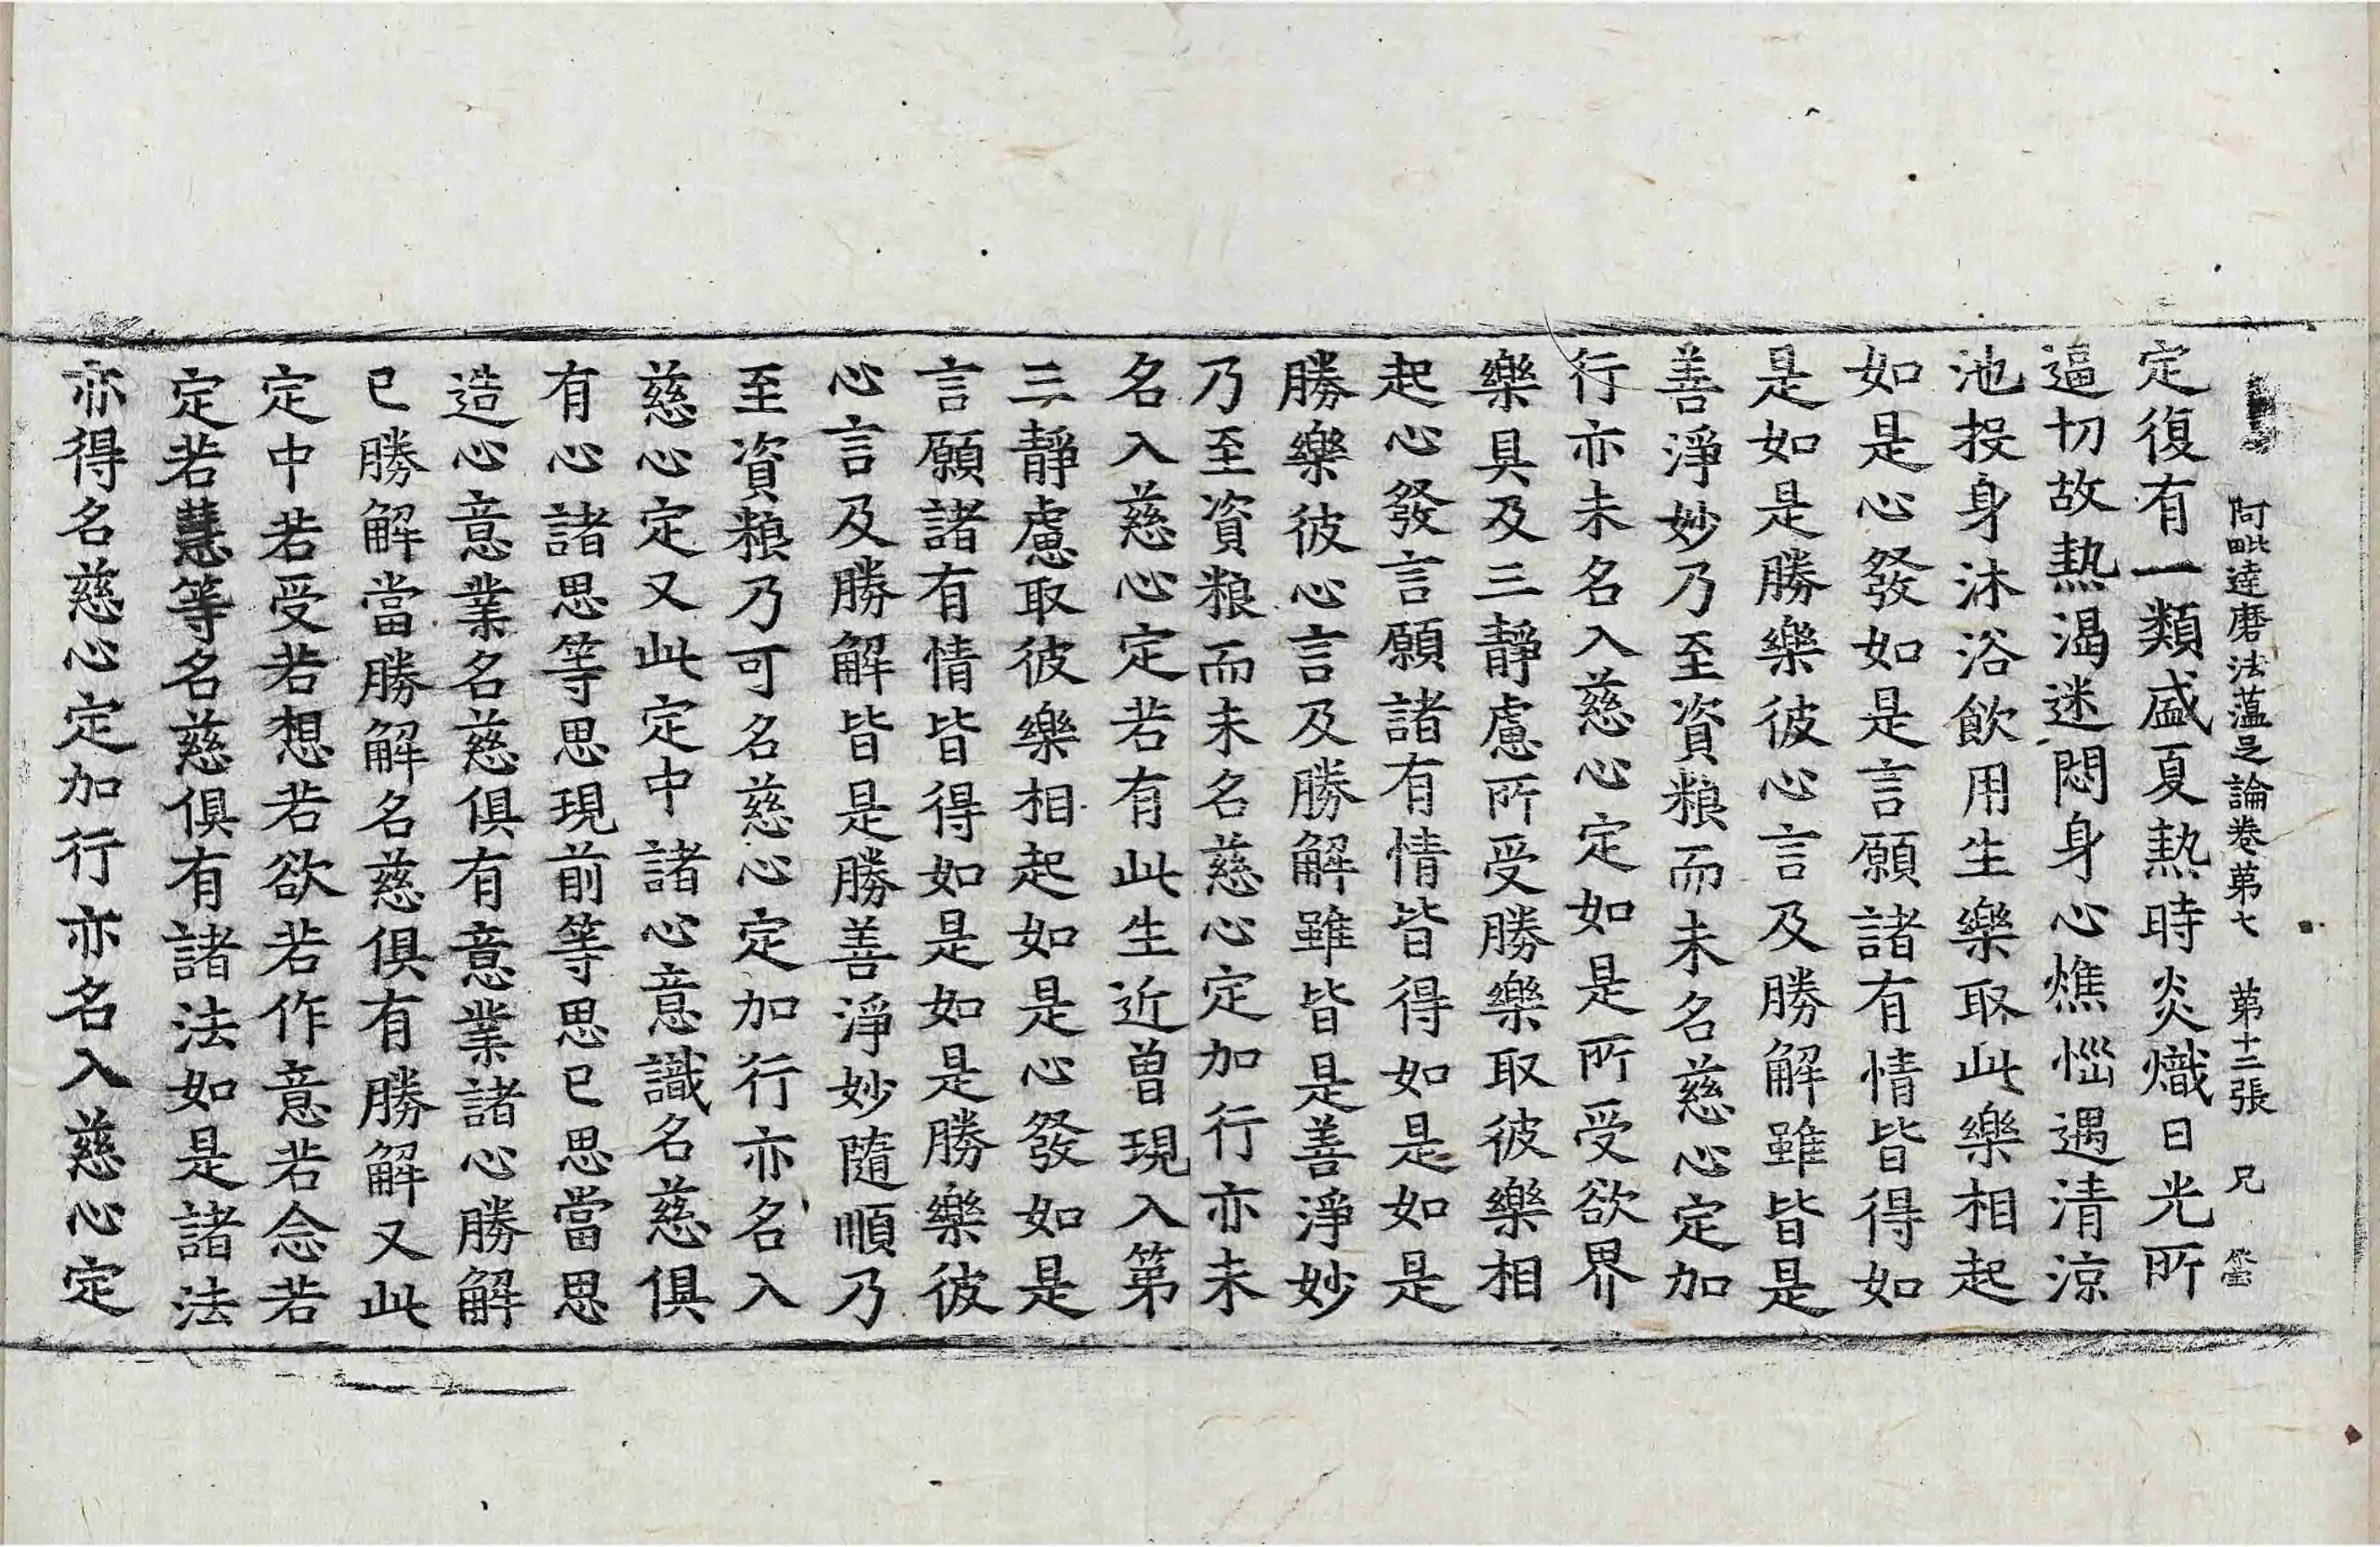 阿毗達磨法蕰足論卷第七 第十二張 兄
定復有一類盛夏熱時炎熾日光所
逼切故熱渴迷悶身心燋惱遇清涼
池投身沐浴飲用生樂取此樂相起
如是心發如是言願諸有情皆得如
是如是勝樂彼心言及勝解雖皆是
善淨妙乃至資粮而未名慈心定加
行亦未名入慈心定如是所受欲界
樂具及三靜慮所受勝樂取彼樂相
起心發言願諸有情皆得如是如是
勝樂彼心言及勝解雖皆是善淨妙
乃至資粮而未名慈心定加行亦未
名入慈心定若有此生近曾現入第
三靜慮取彼樂相起如是心發如是
言願諸有情皆得如是如是勝樂彼
心言及勝解皆是勝善淨妙隨順乃
至資粮乃可名慈心定加行亦名入
慈心定又此定中諸心意識名慈俱
有心諸思等思現前等思已思當思
造心意業名慈俱有意業諸心勝解
已勝解當勝解名慈俱有勝解又此
定中若受若想若欲若作意若念若
定若慧等名慈俱有諸法如是諸法
亦得名慈心定加行亦名入慈心定